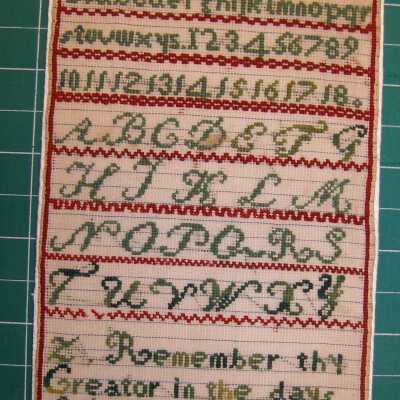 abcdefghijklmnopqr
stuvwxyz.123456789
10 11 12 13 14 15 16 17 18.
A B C D E F G
H I K L M
N O P Q R S
T U V W X Y
Z. Remember thy
Creator in the days